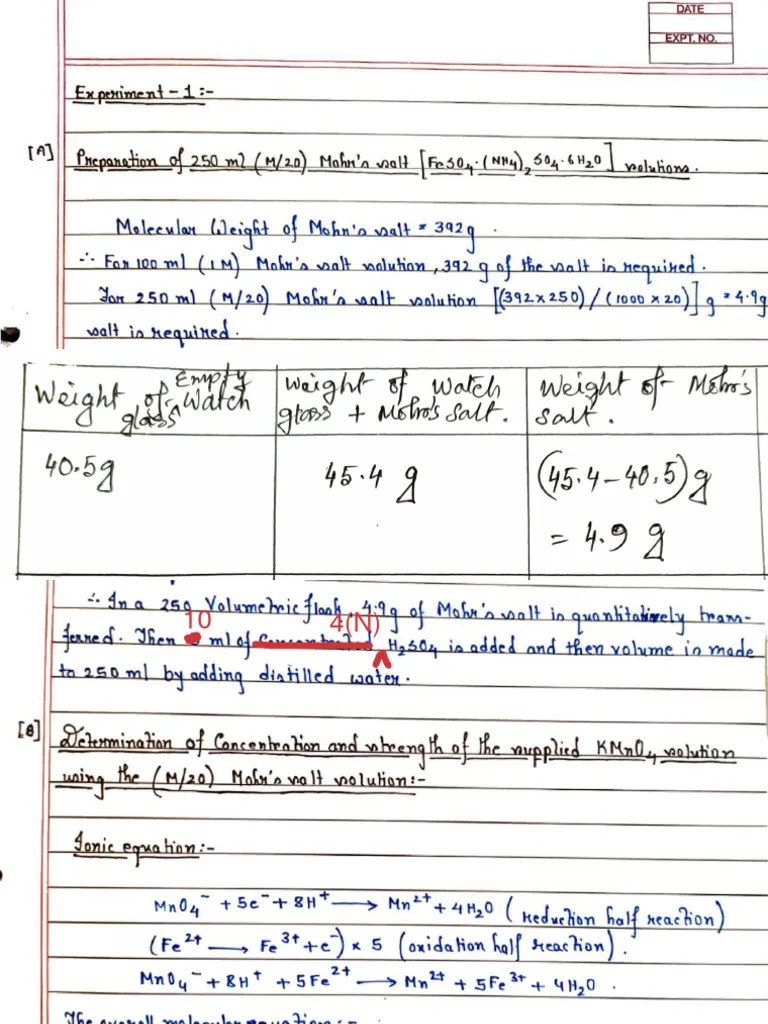 DATE
EXPT. NO.
Experiment - 1 :-
[A] Preparation of 250 ml (M/20) Mohr's salt [FeSO₄·(NH₄)₂SO₄·6H₂O] solutions.
Molecular Weight of Mohr's salt = 392g .
∴ For 100 ml (1M) Mohr's salt solution, 392 g of the salt is required.
For 250 ml (M/20) Mohr's salt solution [(392×250)/(1000×20)] g = 4.9g
salt is required.
Weight of Empty Watch glass
Weight of Watch glass + Mohr's Salt.
Weight of Mohr's Salt.
40.5g
45.4 g
(45.4-40.5)g
= 4.9 g
∴ In a 250 Volumetric flask, 4.9g of Mohr's salt is quantitatively trans-
ferred. Then 10 ml of 4(N) H₂SO₄ is added and then volume is made
to 250 ml by adding distilled water.
[B] Determination of Concentration and strength of the supplied KMnO₄ solution
using the (M/20) Mohr's salt solution:-
Ionic equation:-
MnO₄⁻ + 5e⁻ + 8H⁺ ⟶ Mn²⁺ + 4H₂O (reduction half reaction)
(Fe²⁺ ⟶ Fe³⁺ + e⁻) × 5 (oxidation half reaction).
MnO₄⁻ + 8H⁺ + 5Fe²⁺ ⟶ Mn²⁺ + 5Fe³⁺ + 4H₂O .
The overall molecular equation :-